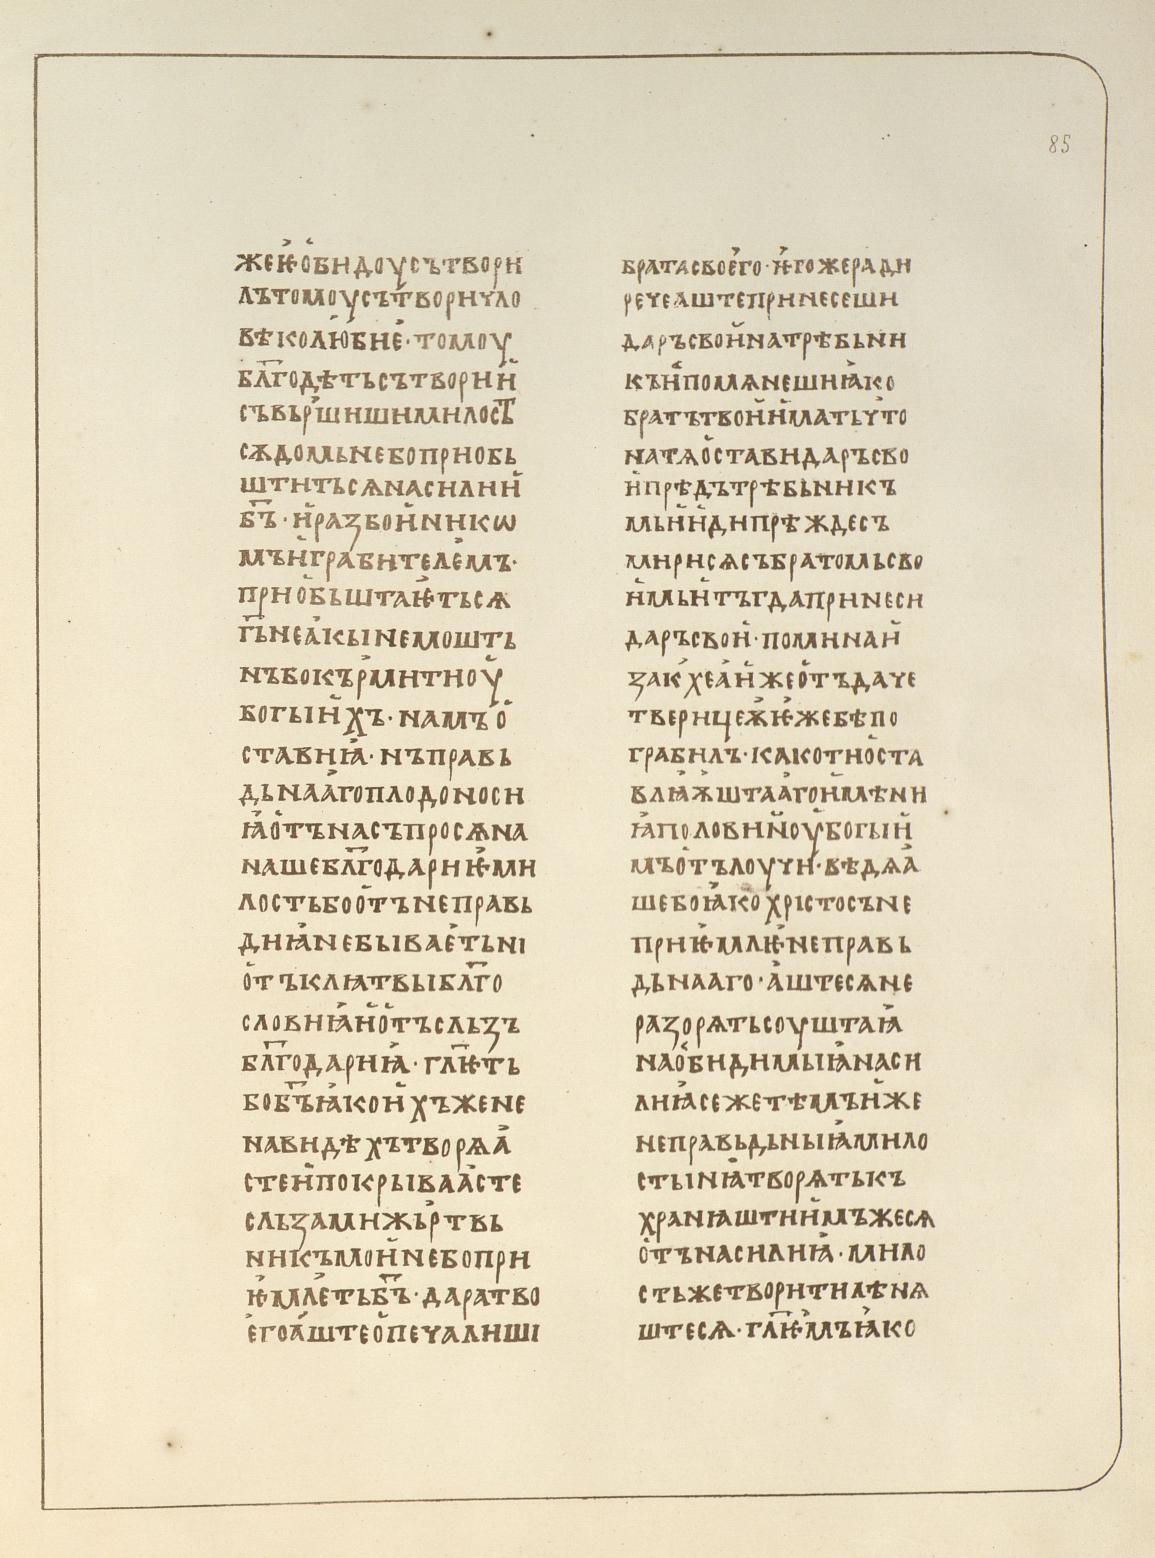 85
жеѥ҆о҆бидоусътвори
лътомоусът҆ворꙑчло
вѣколю҆бие҆·томоу
бл҃годѣтьсътвории҆
съвьр҆шишимилост҃
сѫдомьнебоприобь
штитьсѧнасилии҆
б҃ъ·и҆разбои҆никѡ
мъи҆грабителе҆мъ·
прио҆бьштаѥ҆тьсѧ
г҃ьнеа҆кꙑнемошть
нъбокър҆митиоу҆
богꙑи҆хъ·намъо҆
ставиꙗ҆·нъправь
дьнаа҆гоплодоноси
ꙗ҆о҆тънасъпросѧна
нашебл҃годариѥ҆ми
лостьбоо҆тънеправь
диꙗ҆небꙑвае҆тьнi
о҆тъклѩтвꙑбл҃го
словиꙗ҆и҆о҆тъсльзъ
бл҃годариꙗ҆·гл҃ѥть
бобъ҃ꙗ҆кои҆хъжене
навидѣхътворѧа҆
стеи҆покрꙑваа҆сте
сльзамижьр҆твь
никъмои҆небопри
ѥ҆мле҆тьб҃ъ·даратво
е҆гоа҆штео҆печалишi
братасвое҆го·ѥ҆гожеради
речеаштепринесеши
даръсвои҆натрѣбьни
къи҆помѧнешиꙗ҆ко
братътвои҆и҆матьчьто
натѧо҆ставидаръсво
и҆прѣдътрѣбьникъ
мьи҆и҆дипрѣждесъ
мирисѧсъбратомьсво
и҆мьи҆тъгдапринеси
даръсвои҆·поминаи҆
зак҆хеа҆и҆жео҆тъдаче
тверицеѭ҆ѥ҆жебѣпо
грабилъ·какотио҆ста
влꙗ҆ѭ҆штаа҆гои҆мѣни
ꙗ҆половинꙑоу҆богꙑи҆
мъо҆тълоучи҆·вѣдѧа҆
шебоꙗ҆кохрiстосъне
приѥ҆млѥ҆неправь
дьнааго·а҆штесѧне
разорѧтьсоуштаꙗ҆
нао҆бидимꙑꙗ҆наси
лиꙗ҆сежетѣмъи҆же
неправьдьнꙑꙗ҆мило
стꙑнꙗ҆творѧтькъ
хранѩштии҆мъжесѧ
о҆тънасилиꙗ҆·мило
стьжетворитилѣнѧ
штесѧ·гл҃ѥ҆мъꙗ҆ко